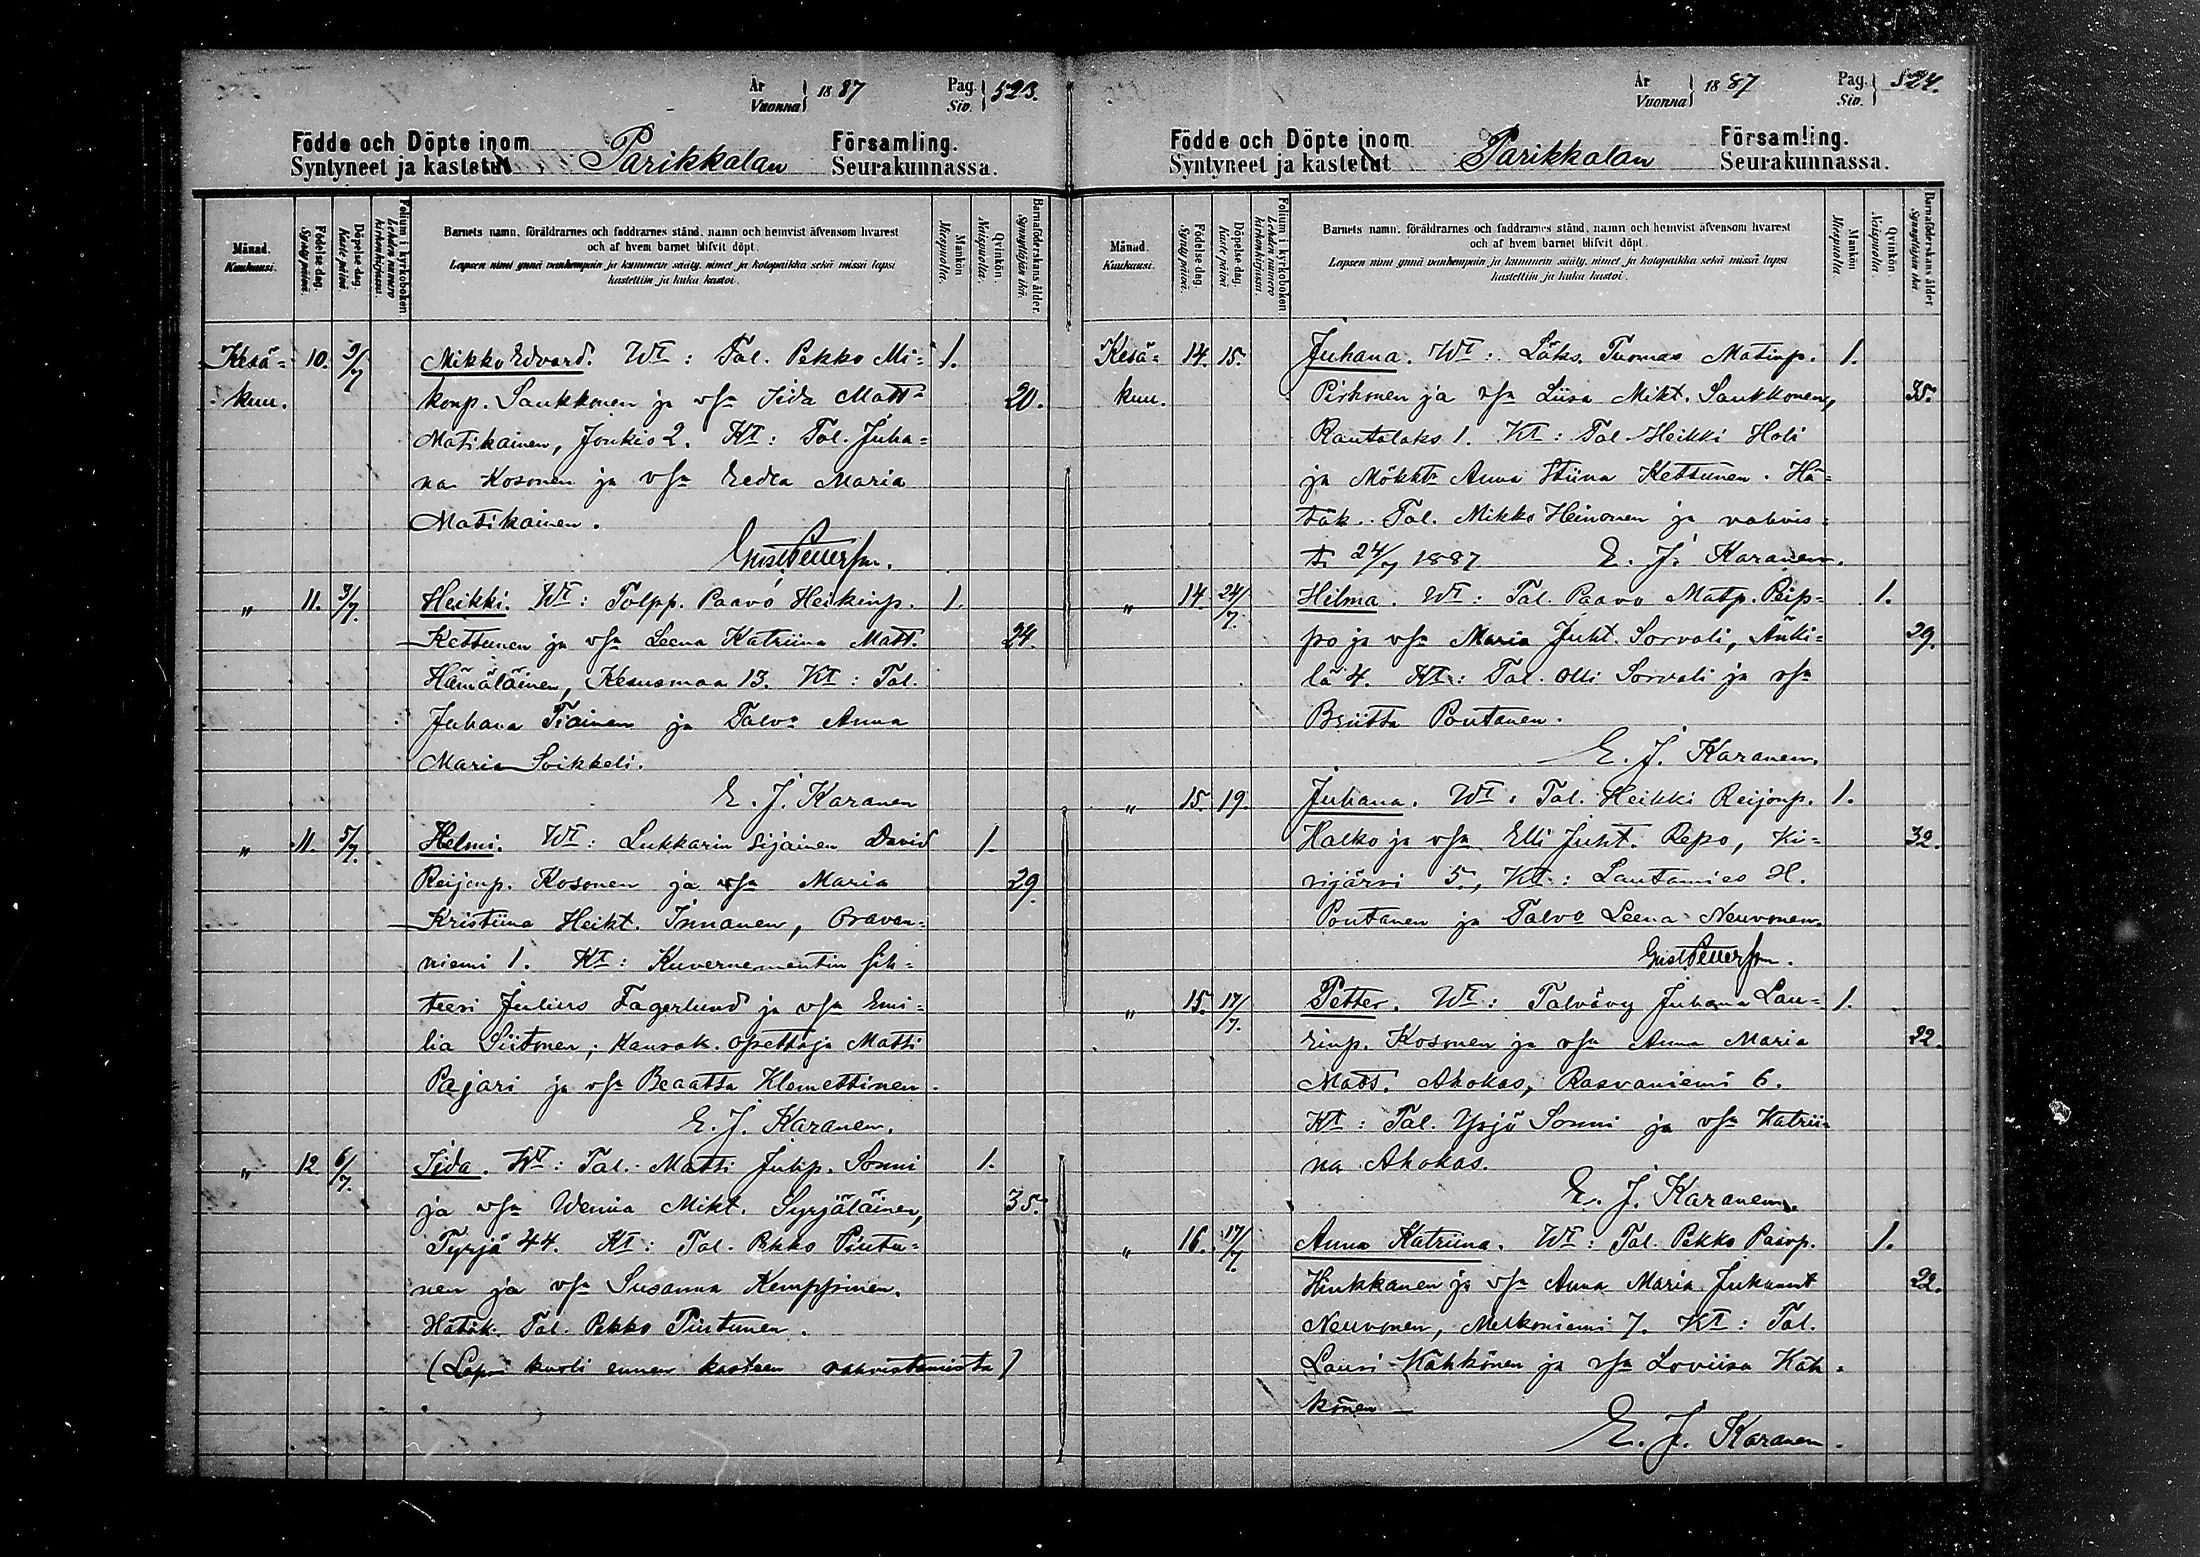 År
Vuonna
1887
Pag.
Siv.
523.
Födde och Döpte inom
Syntyneet ja kastetut
Parikkalan
Församling.
Seurakunnassa.
Månad.
Kuukausi.
Födelse dag.
Synty päivä.
Döpelse dag.
Kaste päivä
Folium i kyrkoboken
Lehden numero
kirkonkirjassa.
Barnets namn, föräldrarnes och faddrarnes stånd, namn och hemvist äfvensom hvarest
och af hvem barnet blifvit döpt.
Lapsen nimi ynnä vanhempain ja kummein sääty, nimet ja kotopaikka sekä missä lapsi
kastettiin ja kuka kastoi.
Mankön
Miespuolia.
Qvinkön.
Naispuolia.
Barnaföderskans ålder.
Synnyttäjän ikä.
Kesä= 10. 3/7 Mikko Edvard. Wt: Tal. Pekko Mi= 1.
kuu. konp. Saukkonen ja vsa Iida Matt= 20.
Matikainen, Joukio 2. Kt: Tal. Juha=
na Kosonen ja vsa Eedla Maria
Matikainen.
Gust Petterson.
" 11. 3/7. Heikki. Wt: Tolpp. Paavo Heikinp. 1.
Kettunen ja vsa Leena Katriina Matt. 24.
Hämäläinen, Kesusmaa 13. Kt: Tal.
Juhana Tiainen ja Talvo Anna
Maria Soikkeli.
E. J. Karanen
" 11. 5/7. Helmi. Wt: Lukkarin sijainen David 1.
Reijonp. Kosonen ja vsa Maria 29.
Kristiina Heikt. Innanen, Oravan=
niemi 1. Kt: Kuvernementin sih=
teeri Julius Fagerlund ja vsa Emi=
lia Siitonen; Kansak. opettaja Matti
Pajari ja vsa Beaatta Klemettinen.
E. J. Karanen.
" 12 6/7. Iida. Wt: Tal. Matti Juhp. Sonni 1.
ja vsa Wenna Mikt. Syrjäläinen, 35.
Tyrjä 44. Kt: Tal. Pekko Pintu=
nen ja vsa Susanna Kemppinen.
Hätäk. Tal. Pekko Pintunen.
(Lapsi kuoli ennen kasteen vahvistamista)
År
Vuonna
1887
Pag.
Siv.
524.
Födde och Döpte inom
Syntyneet ja kastetut
Parikkalan
Församling.
Seurakunnassa.
Månad.
Kuukausi.
Födelse dag.
Synty päivä.
Döpelse dag.
Kaste päivä
Folium i kyrkoboken
Lehden numero
kirkonkirjassa.
Barnets namn, föräldrarnes och faddrarnes stånd, namn och hemvist äfvensom hvarest
och af hvem barnet blifvit döpt.
Lapsen nimi ynnä vanhempain ja kummein sääty, nimet ja kotopaikka sekä missä lapsi
kastettiin ja kuka kastoi.
Mankön
Miespuolia
Qvinkön
Naispuolia.
Barnaföderskans ålder.
Synnyttäjän ikä
Kesä= 14. 15. Juhana. Wt: Läks. Tuomas Matinp. 1.
kuu. Pirhonen ja vsa Liisa Mikt. Saukkonen, 35.
Rautalaks 1. Kt: Tal. Heikki Holi
ja Mökkta Anna Stiina Kettunen. Hä=
täk. Tal. Mikko Heinonen ja vahvis=
t. 24/7 1887 E. J. Karanen.
" 14. 24/7. Hilma. Wt: Tal. Paavo Matp. Reip= 1.
po ja vsa Maria Juht. Sorvali, Änki= 29.
lä 4. Kt: Tal. Olli Sorvali ja vsa
Briitta Poutanen.
E. J. Karanen.
" 15. 19. Juhana. Wt: Tal. Heikki Reijonp. 1.
Halko ja vsa Elli Juht. Repo, Ki= 32.
rijärvi 5., Kt: Lautamies H.
Poutanen ja Talvo Leena Neuvonen.
Gust Petterson.
" 15. 17/7. Petter. Wt: Talvävy Juhana Lau= 1.
rinp. Kosonen ja vsa Anna Maria 22.
Matt. Ahokas, Rasvaniemi 6.
Kt: Tal. Yrjö Sonni ja vsa Katrii=
na Ahokas.
E. J. Karanen.
" 16. 17/7. Anna Katriina. Wt: Tal. Pekko Paavp. 1.
Hinkkanen ja vsa Anna Maria Juhannt 22.
Neuvonen, Melkoniemi 7. Kt: Tal.
Lauri Kähkönen ja vsa Loviisa Käh=
könen
E. J. Karanen.